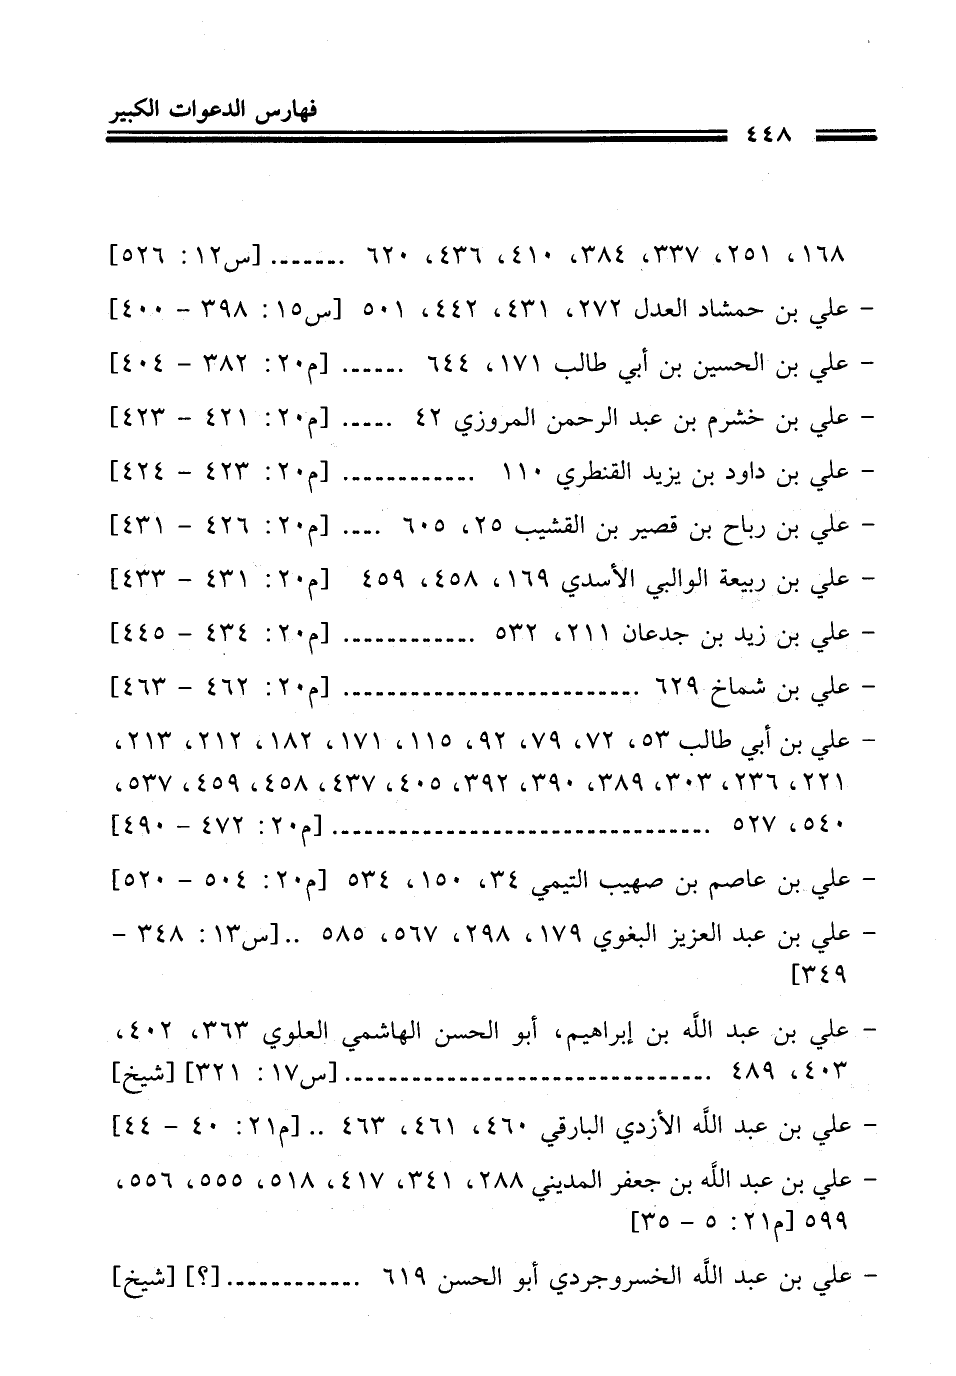 فهارس الدعوات الكبير
٤٤٨
١٦٨، ٢٥١، ٣٣٧، ٣٨٤، ٤١٠، ٤٣٦، ٦٢٠ ....... [س١٢: ٥٢٦]
– علي بن حمشاد العدل ٢٧٢، ٤٣١، ٤٤٢، ٥٠١ [س١٥: ٣٩٨ – ٤٠٠]
– علي بن الحسين بن أبي طالب ١٧١، ٦٤٤ ...... [م٢٠: ٣٨٢ – ٤٠٤]
– علي بن خشرم بن عبد الرحمن المروزي ٤٢ ..... [م٢٠: ٤٢١ – ٤٢٣]
– علي بن داود بن يزيد القنطري ١١٠ ............ [م٢٠: ٤٢٣ – ٤٢٤]
– علي بن رباح بن قصير بن القشيب ٢٥، ٦٠٥ .... [م٢٠: ٤٢٦ – ٤٣١]
– علي بن ربيعة الوالبي الأسدي ١٦٩، ٤٥٨، ٤٥٩ [م٢٠: ٤٣١ – ٤٣٣]
– علي بن زيد بن جدعان ٢١١، ٥٣٢ ............ [م٢٠: ٤٣٤ – ٤٤٥]
– علي بن شماخ ٦٢٩ ........................... [م٢٠: ٤٦٢ – ٤٦٣]
– علي بن أبي طالب ٥٣، ٧٢، ٧٩، ٩٢، ١١٥، ١٧١، ١٨٢، ٢١٢، ٢١٣،
٢٢١، ٢٣٦، ٣٠٣، ٣٨٩، ٣٩٠، ٣٩٢، ٤٠٥، ٤٣٧، ٤٥٨، ٤٥٩، ٥٣٧،
٥٤٠، ٥٢٧ .................................. [م٢٠: ٤٧٢ – ٤٩٠]
– علي بن عاصم بن صهيب التيمي ٣٤، ١٥٠، ٥٣٤ [م٢٠: ٥٠٤ – ٥٢٠]
– علي بن عبد العزيز البغوي ١٧٩، ٢٩٨، ٥٦٧، ٥٨٥ .. [س١٣: ٣٤٨ –
٣٤٩]
– علي بن عبد اللَّه بن إبراهيم، أبو الحسن الهاشمي العلوي ٣٦٣، ٤٠٢،
٤٠٣، ٤٨٩ ................................. [س١٧: ٣٢١] [شيخ]
– علي بن عبد اللَّه الأزدي البارقي ٤٦٠، ٤٦١، ٤٦٣ .. [م٢١: ٤٠ – ٤٤]
– علي بن عبد اللَّه بن جعفر المديني ٢٨٨، ٣٤١، ٤١٧، ٥١٨، ٥٥٥، ٥٥٦،
٥٩٩ [م٢١: ٥ – ٣٥]
– علي بن عبد اللَّه الخسروجردي أبو الحسن ٦١٩ ............ [؟] [شيخ]